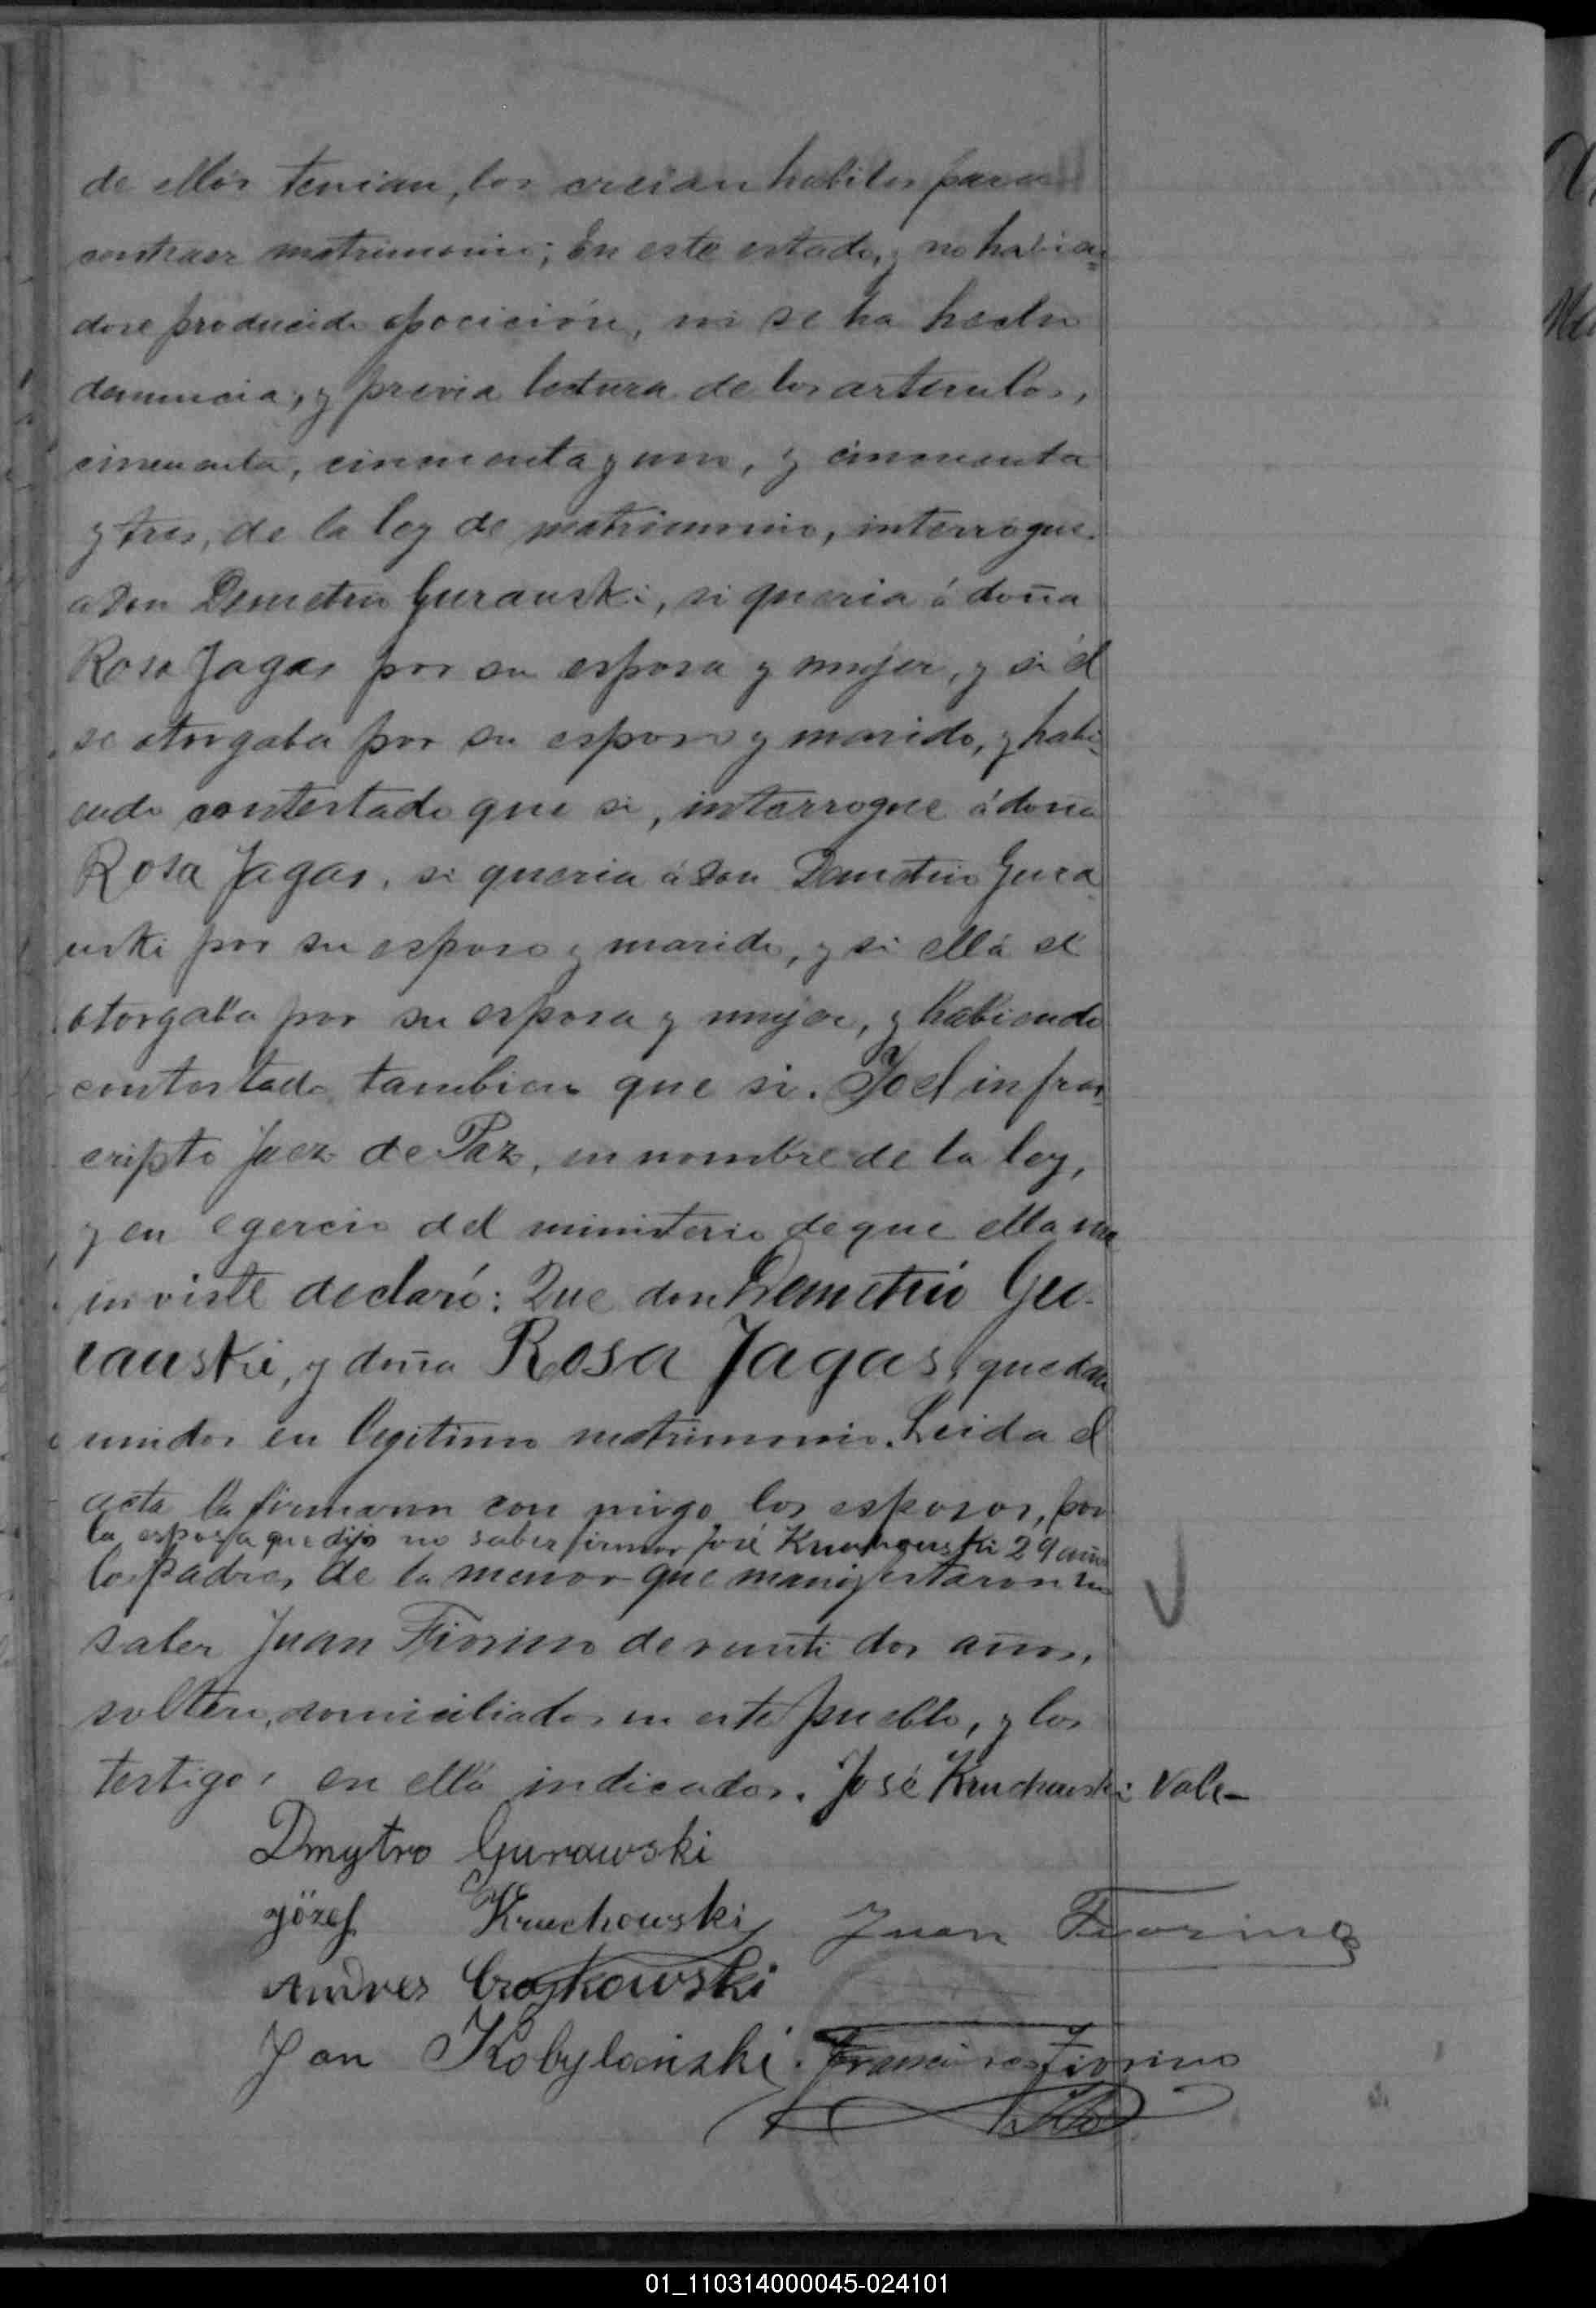 de ellos tenian, los creian habiles para
contraer matrimonio; En este estado, y no habien=
dose producido oposición, ni se ha hecho
denuncia, y previa lectura de los articulos,
cincuenta, cincuenta y uno, y cincuenta
y tres, de la ley de matrimonio, interrogue
a don Demetrio Gurauski, si queria á doña
Rosa Jagas por su esposa y mujer, y si él
se otorgaba por su esposo y marido, y habi=
endo contestado que si, interrogue á doña
Rosa Jagas, si queria á don Demetrio Gura
uski por su esposo y marido, y si ella se
otorgaba por su esposa y mujer, y habiendo
contestado tambien que si. Yo el infras=
cripto Juez de Paz, en nombre de la ley,
y en egercio del ministerio de que ella me
inviste declaré: Que don Demetrio Gu-
rauski, y doña Rosa Jagas, quedan
unidos en legitimo matrimonio. Leida el
acta la firmaron con migo los esposos, por
la esposa que dijo no saber firmar José Kruchouski 29 años
los padres de la menor que manifestaron no
saber Juan Fiorino de veinti dos años,
soltero, domiciliados en este pueblo, y los
testigos en ella indicados. José Kruchouski Vale-
Dmytro Gurawski
Józef Kruchowski Juan Fiorino
Andres Crajkowski
Jan Kobylański. Francisco Fiorino
01_110314000045-024101